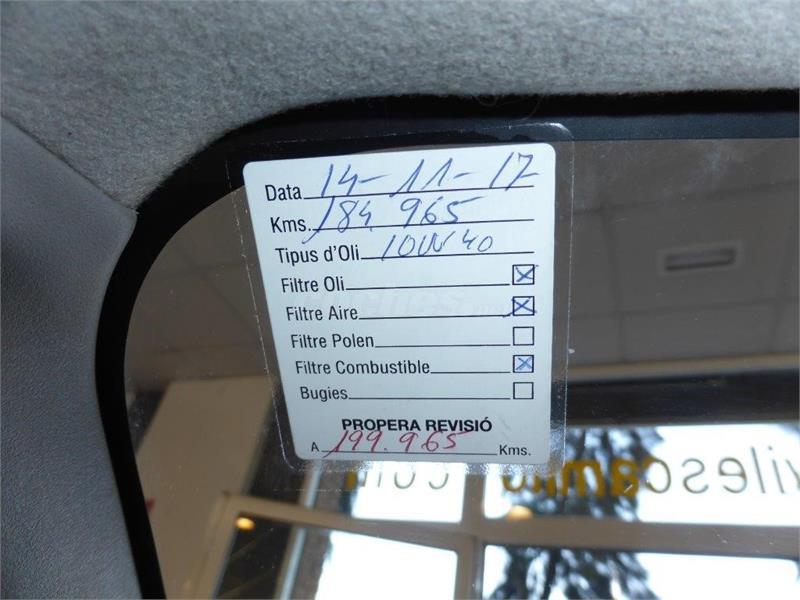 Data 14-11-17
Kms. 184.965
Tipus d'Oli 10W40
Filtre Oli
Filtre Aire
Filtre Polen
Filtre Combustible
Bugies
PROPERA REVISIÓ
A 199.965 Kms.